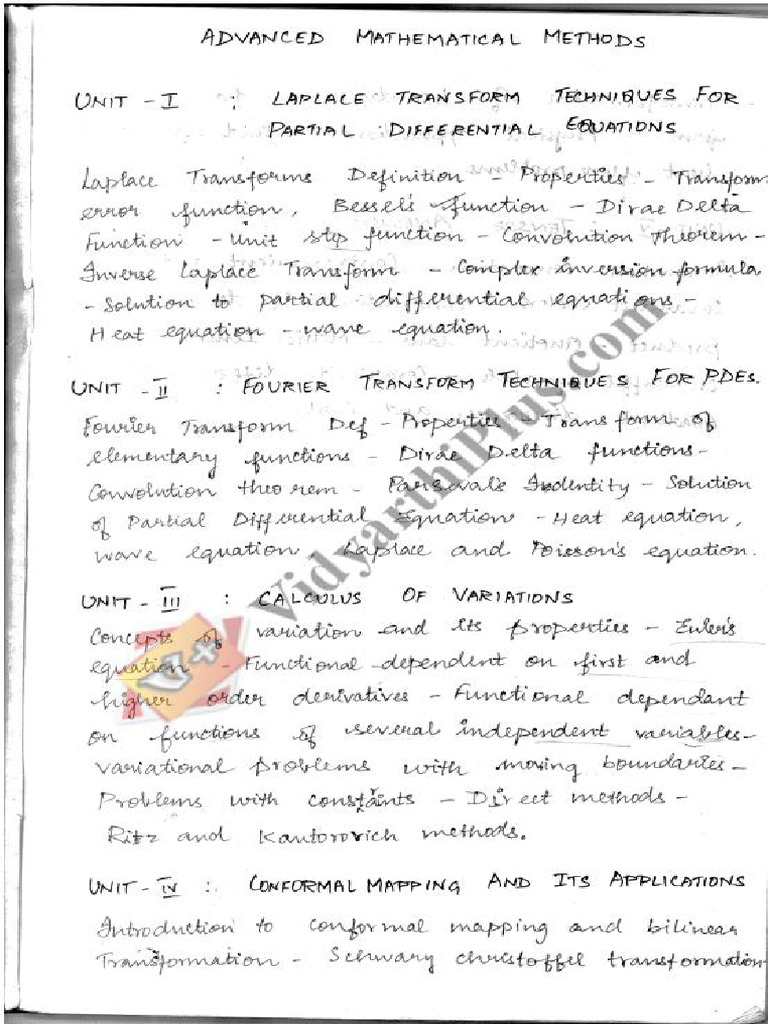 ADVANCED MATHEMATICAL METHODS
UNIT - I : LAPLACE TRANSFORM TECHNIQUES FOR
PARTIAL DIFFERENTIAL EQUATIONS
Laplace Transforms Definition - Properties - Transform
error function, Bessel's function - Dirae Delta
Function - Unit step function - Convolution Theorem -
Inverse Laplace Transform - Complex inversion formula
- Solution to partial differential equations -
Heat equation - wave equation.
UNIT - II : FOURIER TRANSFORM TECHNIQUES FOR PDEs.
Fourier Transform Def - Properties - Transform of
elementary functions - Dirae Delta functions -
Convolution theorem - Parseval's Indentity - Solution
of Partial Differential Equation - Heat equation,
wave equation, Laplace and Poisson's equation.
UNIT - III : CALCULUS OF VARIATIONS
Concepts of variation and its properties - Euler's
equation - Functional dependent on first and
higher order derivatives - Functional dependant
on functions of several independent variables -
variational problems with moving boundaries -
Problems with constraints - Direct methods -
Ritz and Kantorovich methods.
UNIT - IV : CONFORMAL MAPPING AND ITS APPLICATIONS
Introduction to conformal mapping and bilinear
Transformation - Schwary christoffel transformation
VidyarthiPlus.com
V+